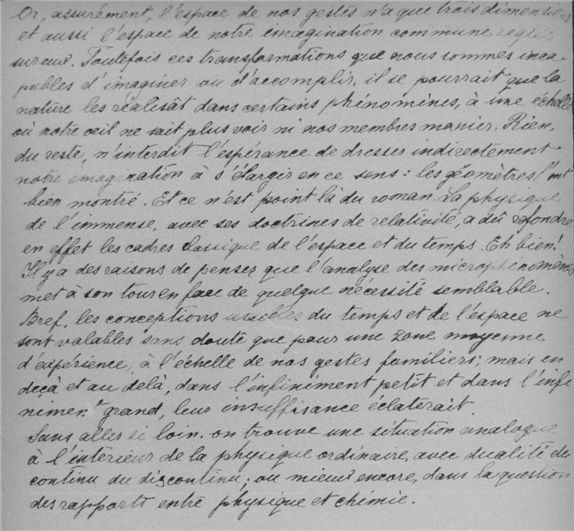 Or, assurément, l'espace de nos gestes n'a que trois dimensions
et aussi l'espace de notre imagination commune réglée
sur eux. Toutefois ces transformations que nous sommes inca
pables d'imaginer ou d'accomplir, il se pourrait que la
nature les réalisât dans certains phénomènes, à une échelle
où notre oeil ne sait plus voir ni nos membres manier. Rien,
du reste, n'interdit l'espérance de dresser indirectement
notre imagination à s'élargir en ce sens: les géomètres l'ont
bien montré. Et ce n'est point là du roman. La physique
de l'immense, avec ses doctrines de relativité, a dû refondre
en effet les cadres classique de l'espace et du temps. Eh bien!
Il y a des raisons de penser que l'analyse des microphénomènes
met à son tour en face de quelque nécessité semblable.
Bref, les conceptions usuelles du temps et de l'espace ne
sont valables sans doute que pour une zone moyenne
d'expérience, à l'échelle de nos gestes familiers; mais en
deçà et au delà, dans l'infiniment petit et dans l'infi
niment grand, leur insuffisance éclaterait.
Sans aller si loin. on trouve une situation analogue
à l'intérieur de la physique ordinaire, avec dualité du
continu du discontinu; ou mieux encore, dans la question
des rapports entre physique et chimie.